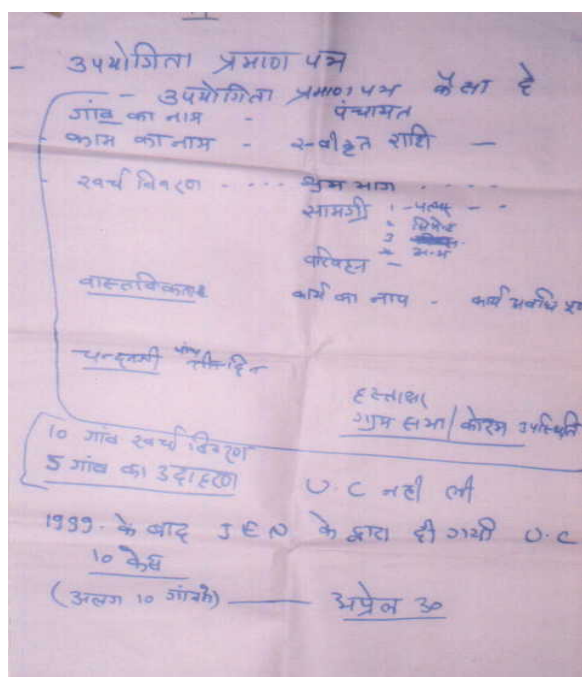 - उपयोगिता प्रमाण पत्र
- उपयोगिता प्रमाण पत्र कैसा है
गांव का नाम - पंचायत
- काम का नाम - स्वीकृत राशि -
- खर्च विवरण - ... श्रम भाग ....
सामग्री 1 - पत्थर - -
2 सिमेन्ट
3
4
परिवहन -
कार्य का नाप - कार्य अवधि
तीन दिन
हस्ताक्षर
ग्राम सभा / कोरम उपस्थिति
10 गांव खर्च विवरण
5 गांव का उदाहरण U.C नही ली
1999. के बाद J E N के द्वारा दी गयी U.C
10 केस
(अलग 10 गांवके) — अप्रेल 30